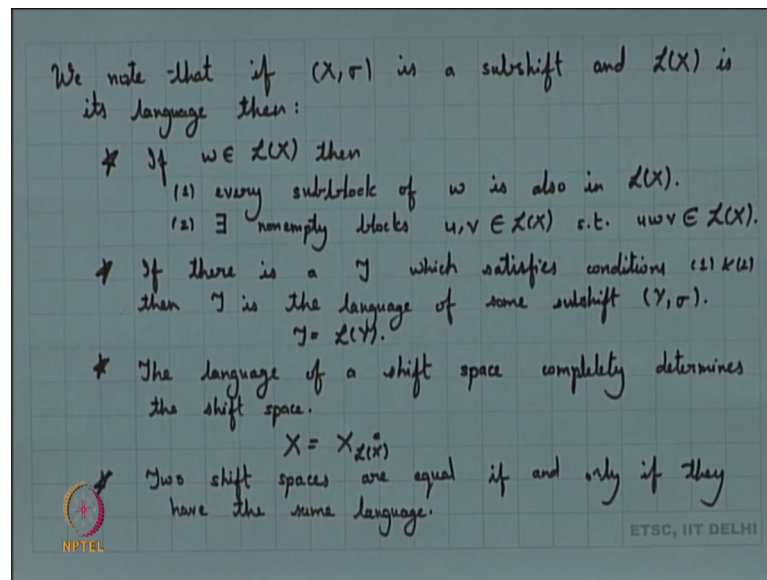 We note that if (X, σ) is a subshift and L(X) is
its language then:
* If w ∈ L(X) then
(1) every subblock of w is also in L(X).
(2) ∃ nonempty blocks u, v ∈ L(X) s.t. uwv ∈ L(X).
* If there is a J which satisfies conditions (1) & (2)
then J is the language of some subshift (Y, σ).
J = L(Y).
* The language of a shift space completely determines
the shift space.
X = X_{L(X)^c}
* Two shift spaces are equal if and only if they
have the same language.
NPTEL
ETSC, IIT DELHI